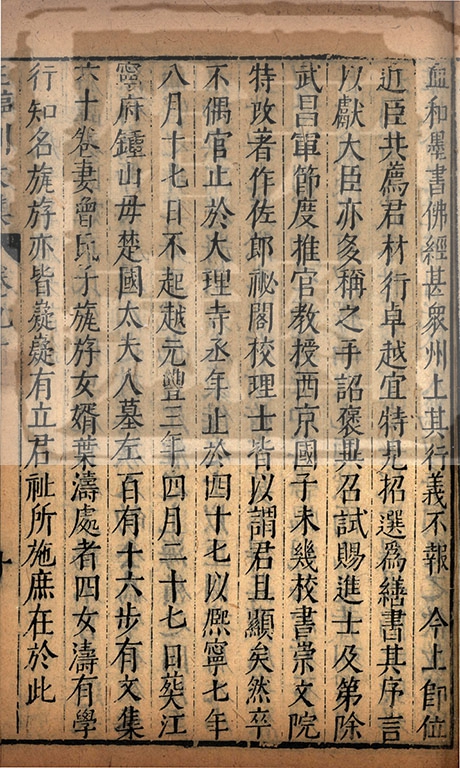 血和墨書佛經甚衆州上其行義不報　今上卽位
近臣共薦君材行卓越宜特見招選爲繕書其序言
以獻大臣亦多稱之手詔褒異召試賜進士及第除
武昌軍節度推官敎授西京國子未幾校書崇文院
特攺著作佐郎祕閣校理士皆以謂君且顯矣然卒
不偶官止於大理寺丞年止於四十七以熈寧七年
八月十七日不起越元豐三年四月二十七日葬江
寧府鍾山毋楚國太夫人墓左百有十六步有文集
六十卷妻曾氏子旊斿女婿葉濤處者四女濤有學
行知名旊斿亦皆嶷嶷有立君祉所施庶在於此